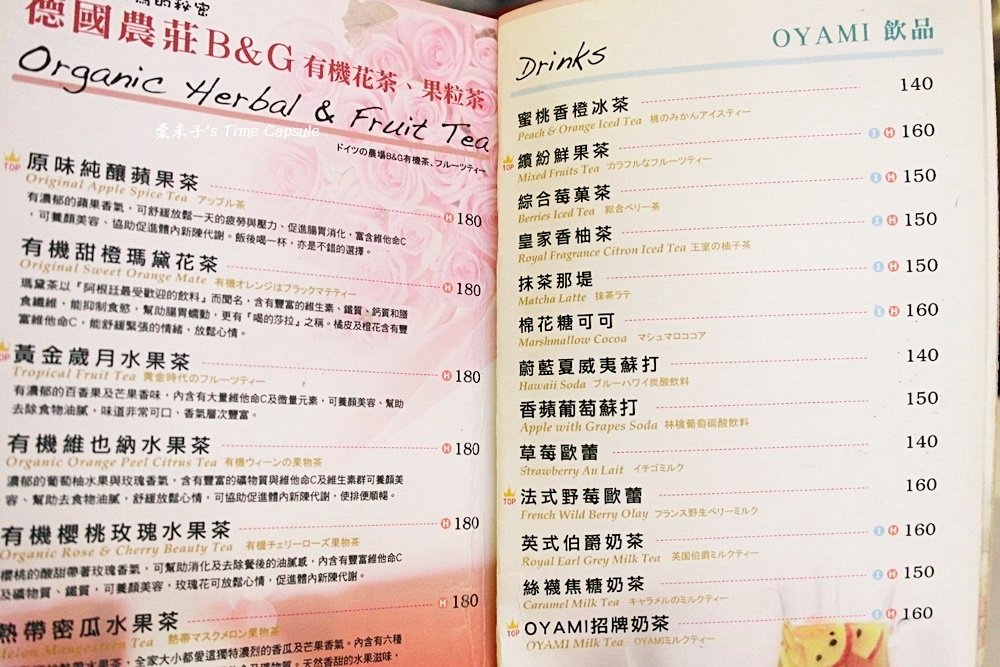 的秘密
德國農莊B&G 有機花茶、果粒茶
Organic Herbal & Fruit Tea
栗米子's Time Capsule
ドイツの農場B&G有機茶、フルーツティー
TOP 原味純釀蘋果茶
Original Apple Spice Tea アップル茶 H 180
有濃郁的蘋果香氣，可舒緩放鬆一天的疲勞與壓力、促進腸胃消化，富含維他命C
，可養顏美容、協助促進體內新陳代謝。飯後喝一杯，亦是不錯的選擇。
有機甜橙瑪黛花茶 H 180
Original Sweet Orange Mate 有機オレンジはブラックマテティー
瑪黛茶以『阿根廷最受歡迎的飲料』而聞名，含有豐富的維生素、鐵質、鈣質和膳
食纖維，能抑制食慾，幫助腸胃蠕動，更有『喝的沙拉』之稱。橘皮及橙花含有豐
富維他命C，能舒緩緊張的情緒、放鬆心情。
TOP 黃金歲月水果茶 H 180
Tropical Fruit Tea 黄金時代のフルーツティー
有濃郁的百香果及芒果香味，內含有大量維他命C及微量元素，可養顏美容、幫助
去除食物油膩，味道非常可口，香氣層次豐富。
有機維也納水果茶 H 180
Organic Orange Peel Citrus Tea 有機ウィーンの果物茶
濃郁的葡萄柚水果與玫瑰香氣，含有豐富的礦物質與維他命C及維生素群可養顏美
容、幫助去食物油膩，舒緩放鬆心情，可協助促進體內新陳代謝，使排便順暢。
有機櫻桃玫瑰水果茶 H 180
Organic Rose & Cherry Beauty Tea 有機チェリーローズ果物茶
櫻桃的酸甜帶著玫瑰香氣，可幫助消化及去除餐後的油膩感，內含有豐富維他命C
及礦物質、鐵質，可養顏美容，玫瑰花可放鬆心情，促進體內新陳代謝。
熱帶密瓜水果茶 H 180
Melon Mangosteen Tea 熱帯マスクメロン果物茶
味，全家大小都愛這獨特濃烈的香瓜及芒果香氣。內含有六種
Drinks
OYAMI 飲品
蜜桃香橙冰茶 140
Peach & Orange Iced Tea 桃のみかんアイスティー
TOP 繽紛鮮果茶 I H 160
Mixed Fruits Tea カラフルなフルーツティー
綜合莓菓茶 I H 150
Berries Iced Tea 総合ベリー茶
皇家香柚茶 I H 150
Royal Fragrance Citron Iced Tea 王室の柚子茶
抹茶那堤 I H 150
Matcha Latte 抹茶ラテ
棉花糖可可 I H 160
Marshmallow Cocoa マシュマロココア
蔚藍夏威夷蘇打 140
Hawaii Soda ブルーハワイ炭酸飲料
香蘋葡萄蘇打 150
Apple with Grapes Soda 林檎葡萄碳酸飲料
草莓歐蕾 140
Strawberry Au Lait イチゴミルク
TOP 法式野莓歐蕾 160
French Wild Berry Olay フランス野生ベリーミルク
英式伯爵奶茶 I H 160
Royal Earl Grey Milk Tea 英国伯爵ミルクティー
絲襪焦糖奶茶 I H 150
Caramel Milk Tea キャラメルのミルクティー
TOP OYAMI招牌奶茶 I H 160
OYAMI Milk Tea OYAMIミルクティー